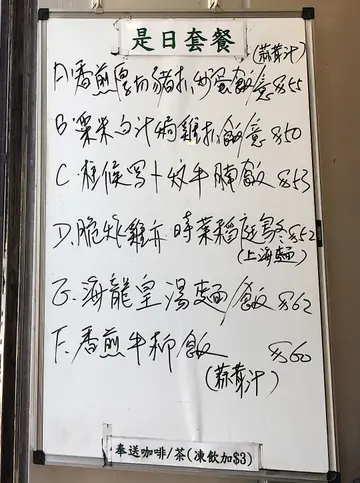 是日套餐
(蒜茸汁)
A:香煎厚切豬扒炒蛋飯/意 $55
B:粟米白汁焗雞扒飯/意 $50
C.柱侯蘿卜炆牛腩飯 $53
D.脆炸雞亦 時菜稻庭烏冬 $52
(上海麵)
E.海龍皇湯麵/飯 $62
F.香煎牛柳飯 $60
(蒜茸汁)
奉送咖啡/茶(凍飲加$3)